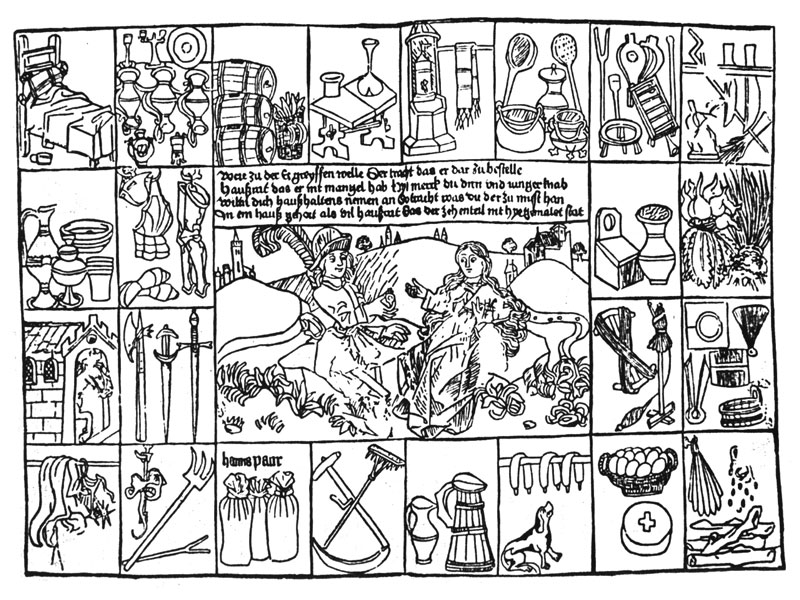 Wer zu der Ee greyffen welle Der tracht das er dar zu bestelle
Haußrat das er nit mangel hab merck du dirn vnd iunger knab
Wiltu dich haußhaltens nemen an so tracht was du der zu must han
In ein hauß gehort als vil haußrat das der zehenteil nit hye gemalet stat
hanns paur